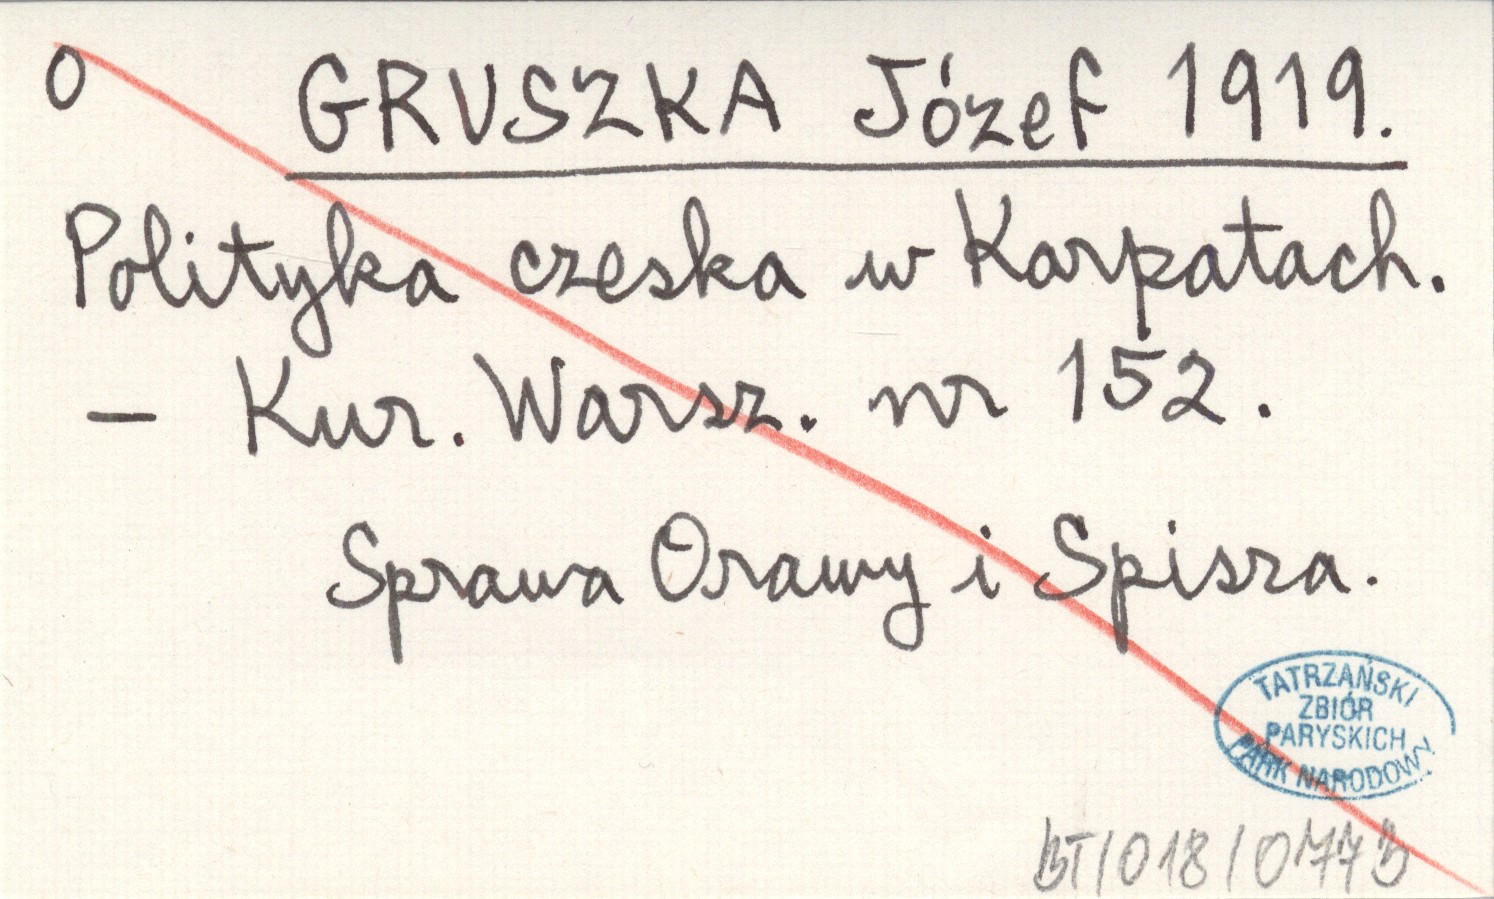 O GRUSZKA Józef 1919.
Polityka czeska w Karpatach.
- Kur. Warsz. nr 152.
Sprawa Orawy i Spisza.
TATRZAŃSKI
ZBIÓR
PARYSKICH
PARK NARODOWY
BT/018/0773